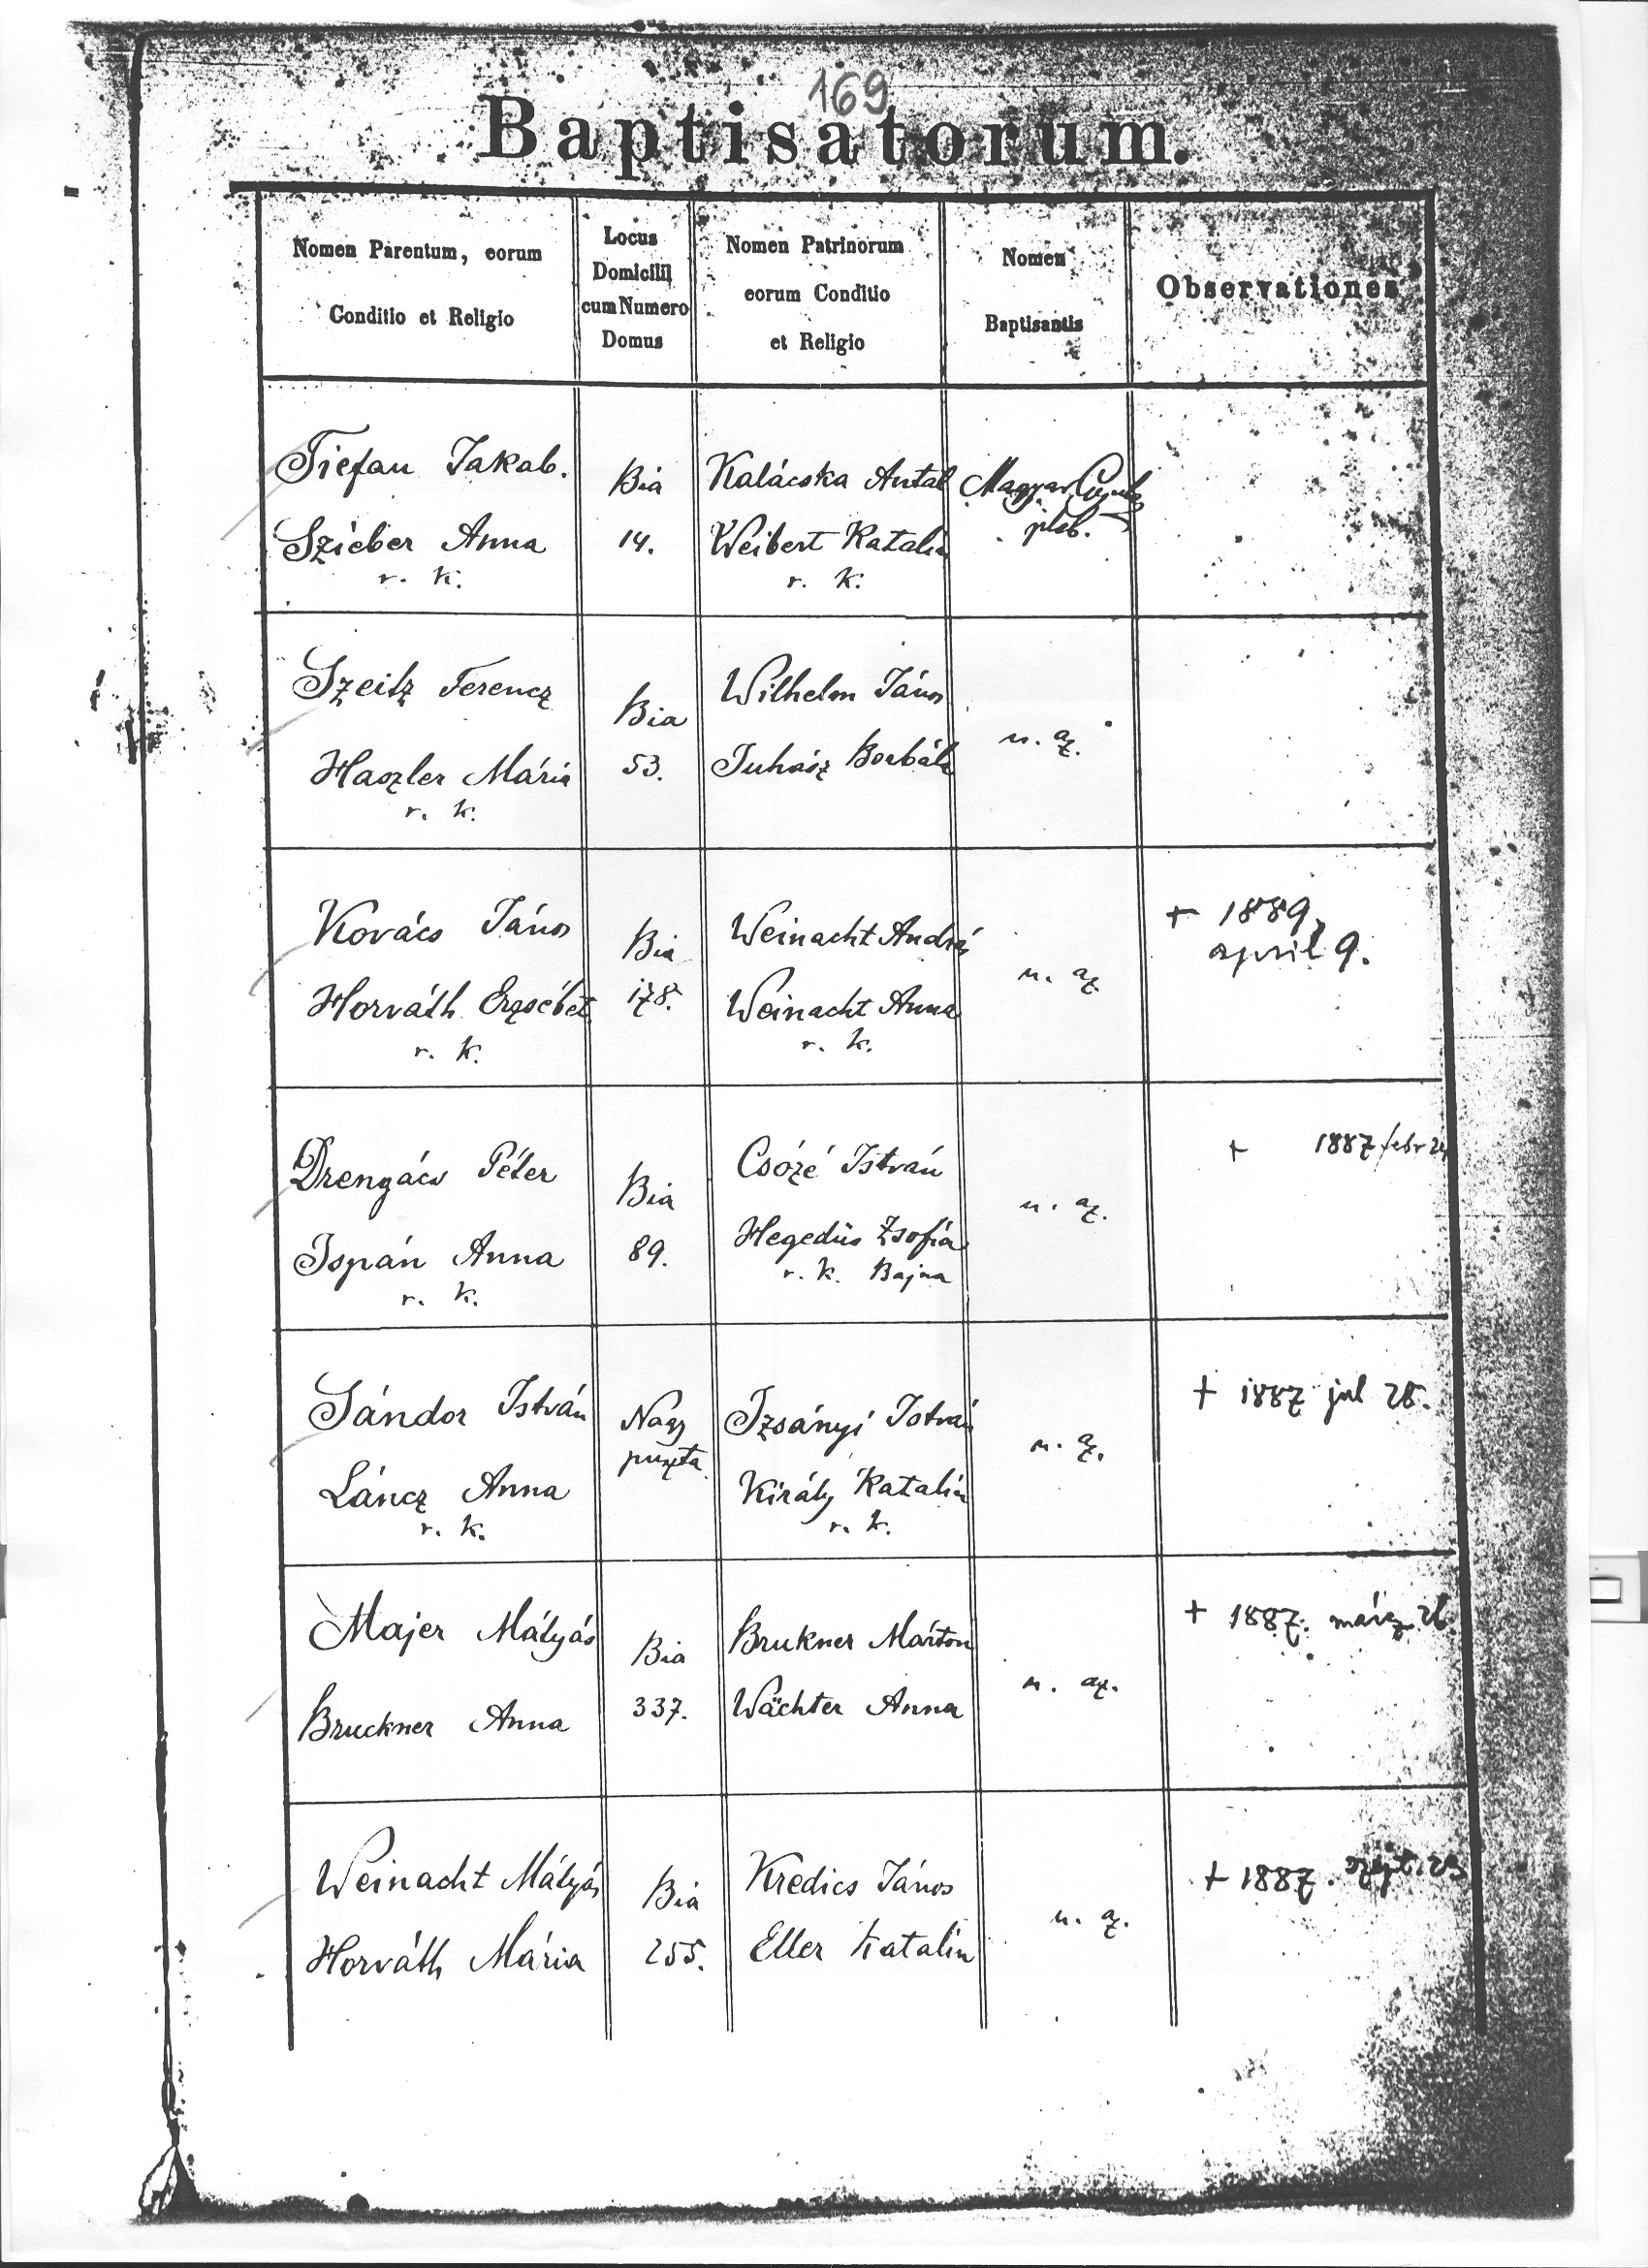 169
Baptisatorum.
Nomen Parentum, eorum
Conditio et Religio
Locus
Domicilii
cum Numero
Domus
Nomen Patrinorum
eorum Conditio
et Religio
Nomen
Baptisantis
Observationes
Tiefau Jakab.
Szieber Anna
r. k.
Bia
14.
Kalácska Antal
Weibert Katalin
r. k.
Magyar Gyula
pleb.
Szeitz Ferencz
Haszler Mária
r. k.
Bia
53.
Wilhelm János
Juhász Borbála
u. az.
Kovács János
Horváth Erzsébet
r. k.
Bia
178.
Weinacht András
Weinacht Anna
r. k.
u. az
+ 1889,
april 9.
Drengács Péter
Ispán Anna
r. k.
Bia
89.
Csózé István
Hegedüs Zsofia
r. k. Bajna
u. az.
+ 1887 febr 24
Sándor István
Láncz Anna
r. k.
Nagy
puszta
Izsányi István
Király Katalin
r. k.
u. az.
+ 1887 jul 28.
Majer Mátyás
Bruckner Anna
Bia
337.
Brukner Márton
Wächter Anna
u. az.
+ 1887. márcz 26.
Weinacht Mátyás
Horváth Mária
Bia
255.
Kredics János
Eller Katalin
u. az.
+ 1887. szept. 23